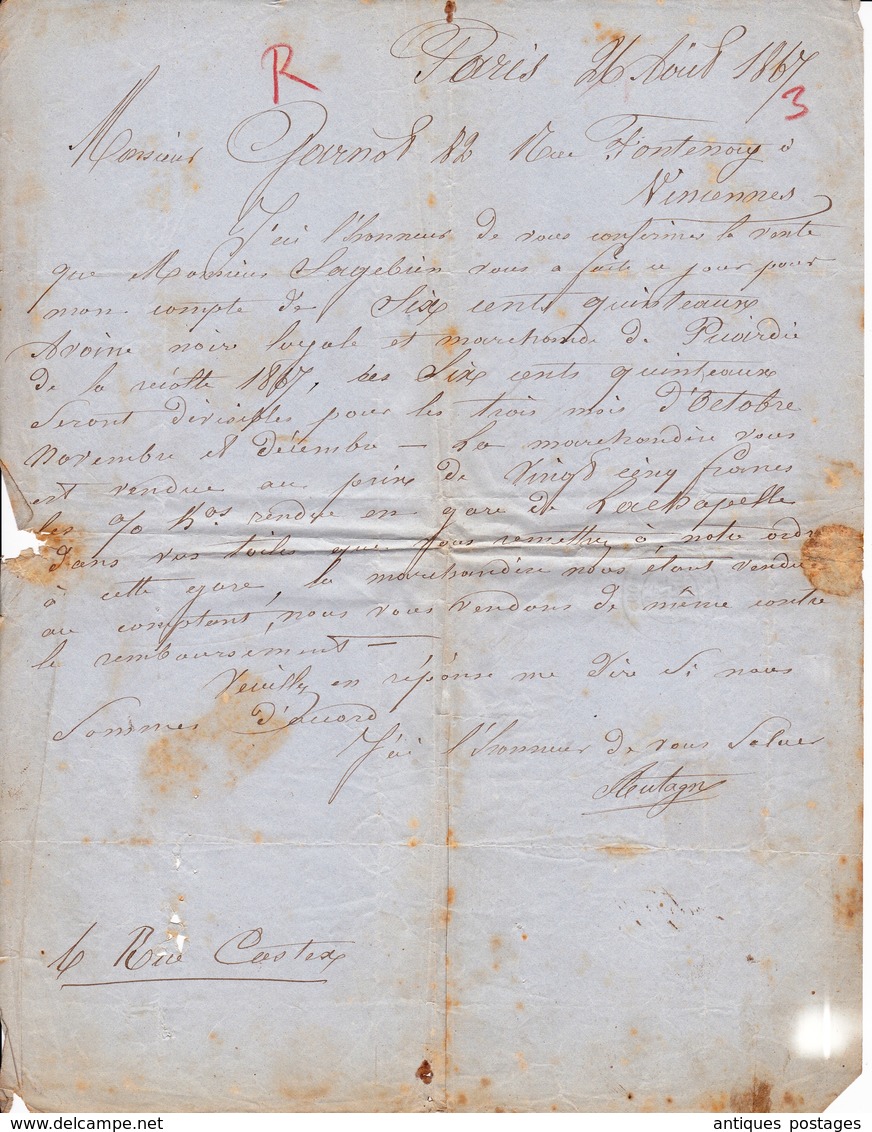 R
Paris 26 Août 1867
3
Monsieur Garnot 82 Rue Fontenay à
Vincennes
J'ai l'honneur de vous confirmer la vente
que Monsieur Lagebien vous a faite ce jour pour
mon compte de Six cents quinteaux
Avoine noire loyale et marchande de Picardie
de la récolte 1867, ces Six cents quinteaux
seront divisibles pour les trois mois d'Octobre
Novembre et décembre — La marchandise vous
est vendue au prix de Vingt cinq francs
les % Kos rendue en gare de Lachapelle
dans vos toiles que vous remettrez à notre ordre
à cette gare, la marchandise nous étant vendue
au comptant, nous vous vendons de même contre
le remboursement —
Veuillez en réponse me dire si nous
sommes d'accord
J'ai l'honneur de vous saluer
6 Rue Castex
antiques postages